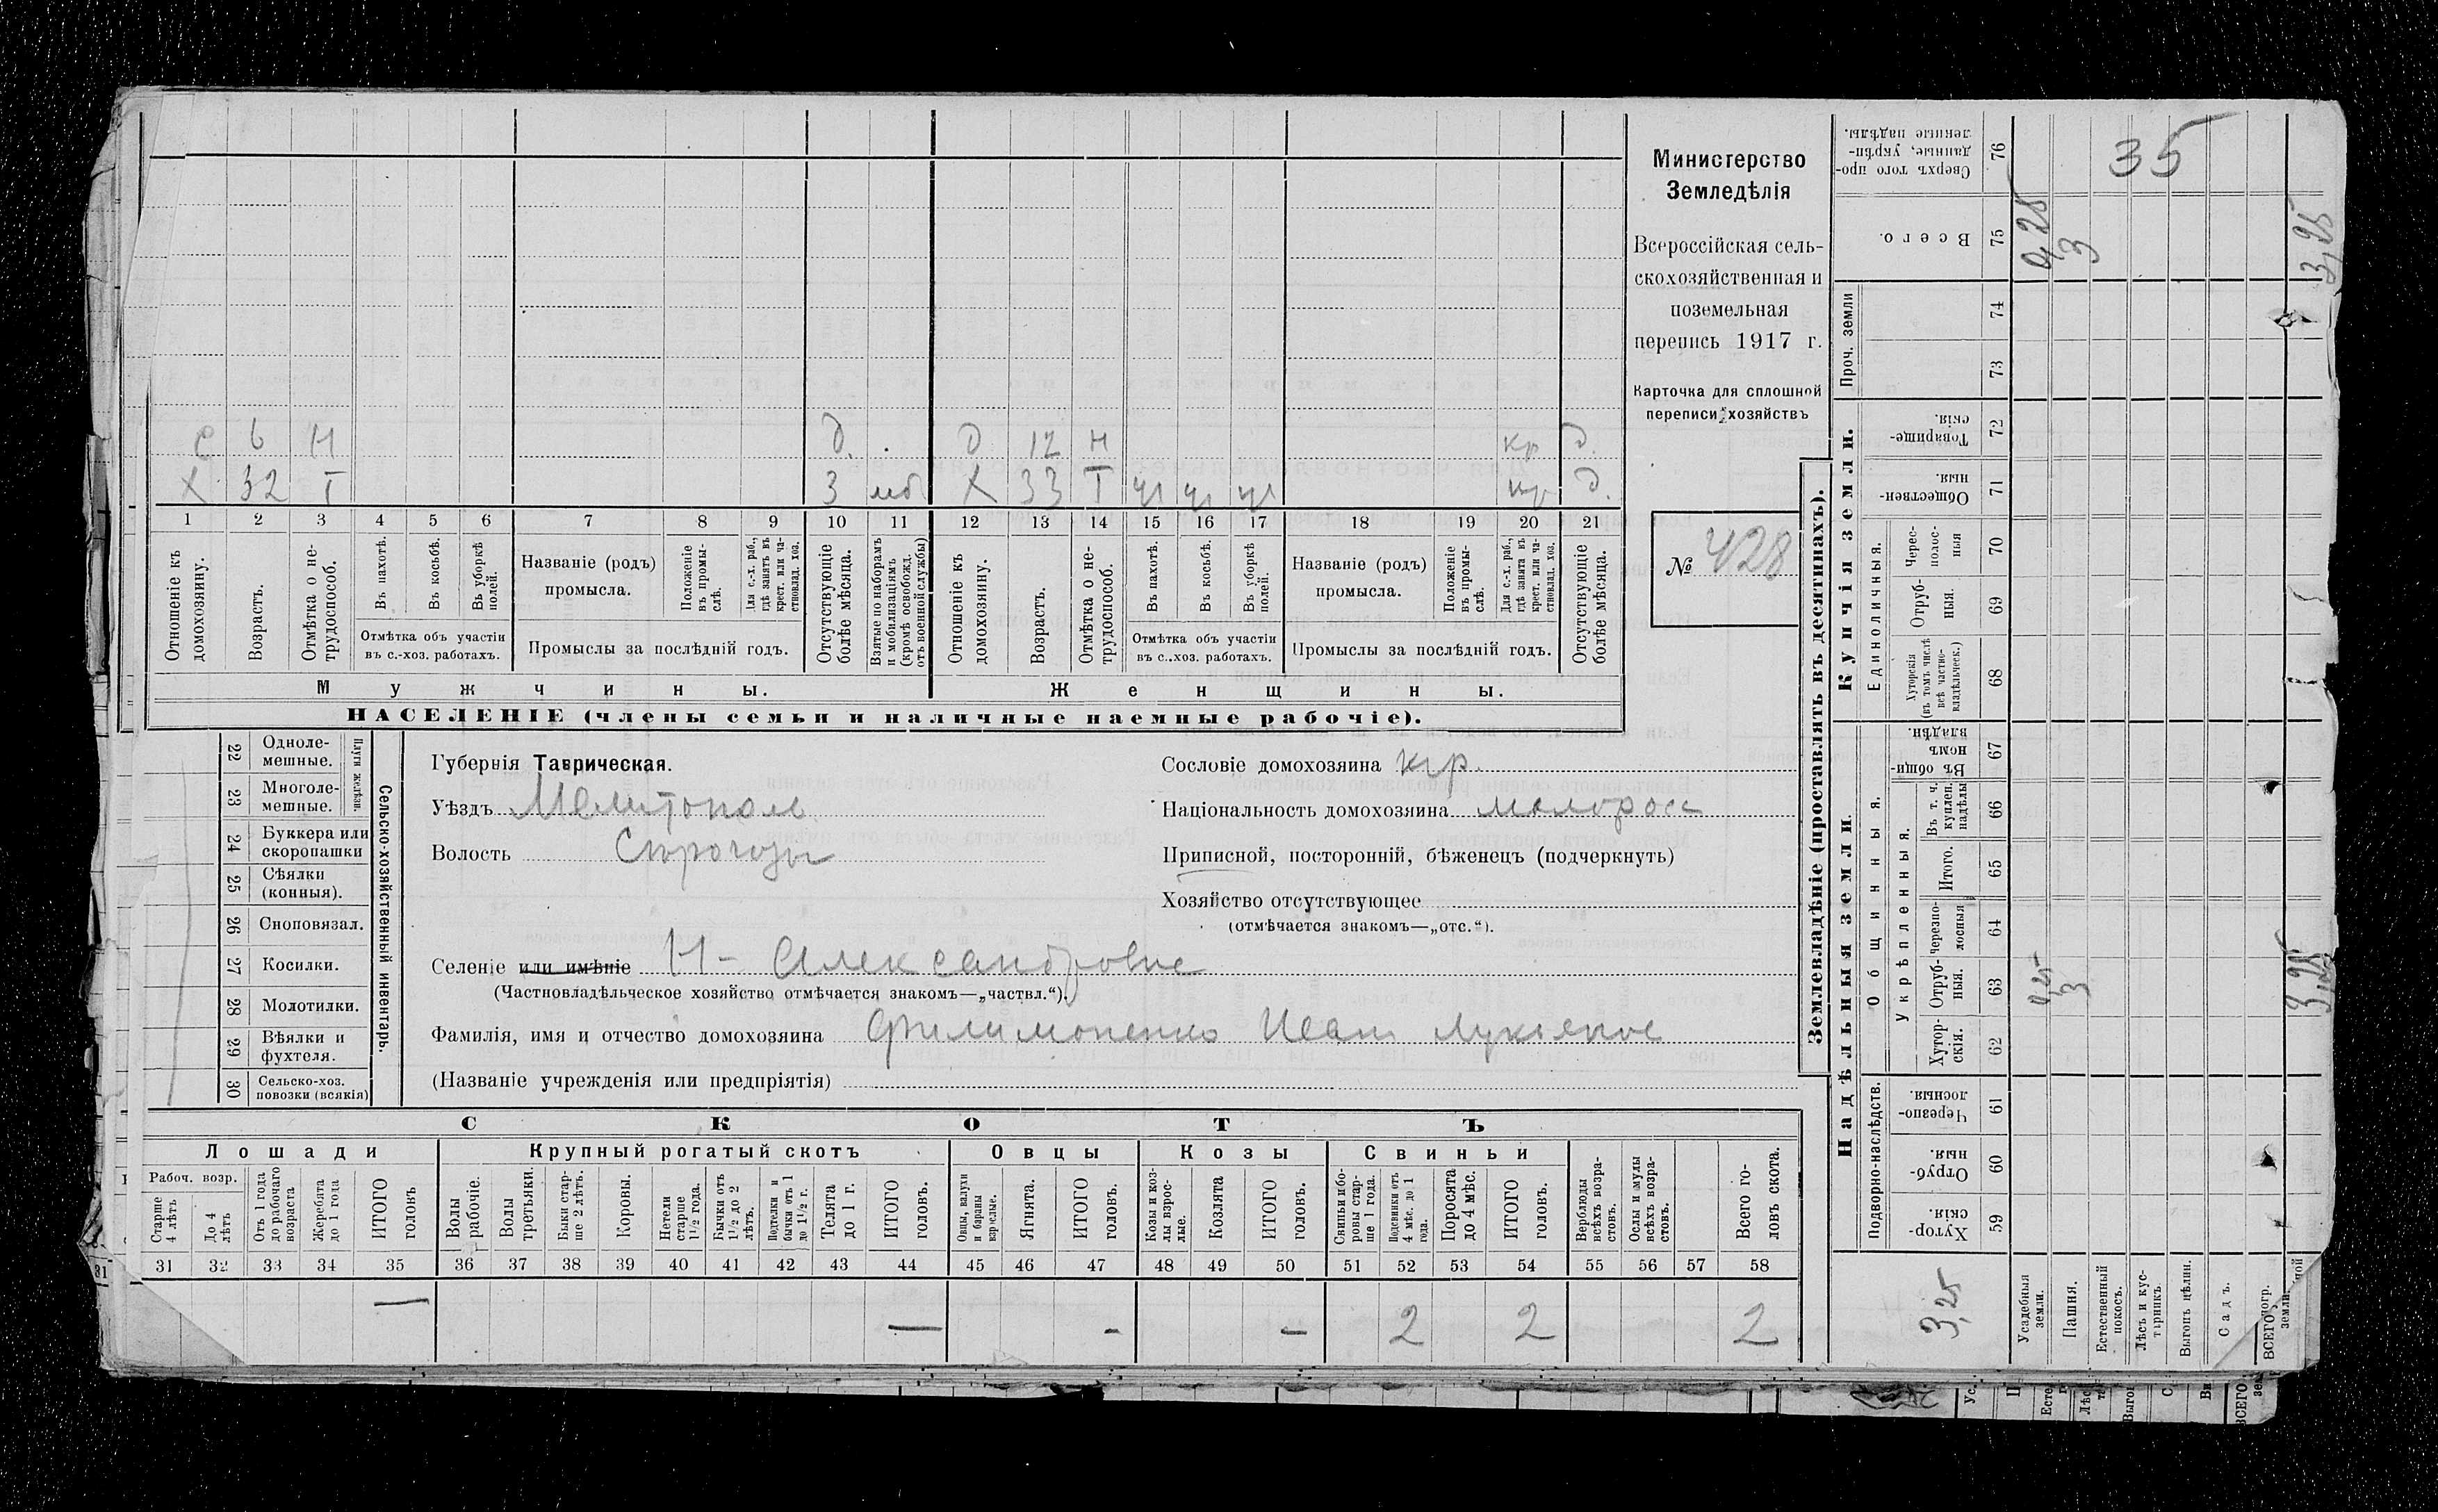 Министерство
Земледѣлія
Всероссійская сель-
скохозяйственная и
поземельная
перепись 1917 г.
Карточка для сплошной
переписи хозяйствъ
№ 428
с 6 Н д. д 12 н кр д.
Х 32 Т 3 моб Х 33 Т ч ч ч кр д.
1 2 3 4 5 6 7 8 9 10 11 12 13 14 15 16 17 18 19 20 21
Отношеніе къ домохозяину.
Возрастъ.
Отмѣтка о не-трудоспособ.
Въ пахотѣ.
Въ косьбѣ.
Въ уборкѣ полей.
Отмѣтка объ участіи
въ с.-хоз. работахъ.
Названіе (родъ)
промысла.
Положеніе въ промы-слѣ.
Для с.-х. раб., гдѣ занятъ въ крест. или ча-стновлад. хоз.
Промыслы за послѣдній годъ.
Отсутствующіе болѣе мѣсяца.
Взятые по наборамъ и мобилизаціямъ (кромѣ освобожд. отъ военной службы)
Отношеніе къ домохозяину.
Возрастъ.
Отмѣтка о не-трудоспособ.
Въ пахотѣ.
Въ косьбѣ.
Въ уборкѣ полей.
Отмѣтка объ участіи
въ с.-хоз. работахъ.
Названіе (родъ)
промысла.
Положеніе въ промы-слѣ.
Для с.-х. раб., гдѣ занята въ крест. или ча-стновлад. хоз.
Промыслы за послѣдній годъ.
Отсутствующіе болѣе мѣсяца.
Мужчины. Женщины.
НАСЕЛЕНІЕ (члены семьи и наличные наемные рабочіе).
Сельско-хозяйственный инвентарь.
Плуги желѣзн.
22 Одноле-мешные.
23 Многоле-мешные.
24 Буккера или скоропашки
25 Сѣялки (конныя).
26 Сноповязал.
27 Косилки.
28 Молотилки.
29 Вѣялки и фухтеля.
30 Сельско-хоз. повозки (всякія)
Губернія Таврическая.
Уѣздъ Мелитополь
Волость Сірогозы
Сословіе домохозяина кр.
Національность домохозяина малоросс
Приписной, посторонній, бѣженецъ (подчеркнуть)
Хозяйство отсутствующее
(отмѣчается знакомъ—„отс.“).
Селеніе или имѣніе Н-Александровка
(Частновладѣльческое хозяйство отмѣчается знакомъ—„частвл.“).
Фамилія, имя и отчество домохозяина Филимоненко Иван Лукьянов
(Названіе учрежденія или предпріятія)
СКОТЪ
Лошади Крупный рогатый скотъ Овцы Козы Свиньи
Рабоч. возр.
Старше 4 лѣтъ
До 4 лѣтъ
Отъ 1 года до рабочаго возраста
Жеребята до 1 года
ИТОГО головъ
Волы рабочіе.
Волы третьяки.
Быки стар-ше 2 лѣтъ.
Коровы.
Нетели старше 1½ года.
Бычки отъ 1½ до 2 лѣтъ.
Подтелки и бычки отъ 1 до 1½ г.
Телята до 1 г.
ИТОГО головъ.
Овцы, валухи и бараны взрослые.
Ягнята.
ИТОГО головъ.
Козы и коз-лы взрос-лые.
Козлята
ИТОГО головъ.
Свиньи и бо-ровы стар-ше 1 года.
Подсвинки отъ 4 мѣс. до 1 года.
Поросята до 4 мѣс.
ИТОГО головъ.
Верблюды всѣхъ возра-стовъ.
Ослы и мулы всѣхъ возра-стовъ.
Всего го-ловъ скота.
31 32 33 34 35 36 37 38 39 40 41 42 43 44 45 46 47 48 49 50 51 52 53 54 55 56 57 58
— — — — 2 2 2
Землевладѣніе (проставлять въ десятинахъ).
Купчія земли.
Надѣльныя земли.
Сверхъ того про-данные, укрѣп-ленные надѣлы. 76 35
Всего. 75 0,25 3 3,25
Проч. земли 74 73
Товарище-скія 72
Обществен-ныя 71
Единоличныя.
Черес-полос-ныя 70
Отруб-ныя. 69
Хуторскія (въ томъ числѣ всѣ частно-владѣльческ.) 68
Общинныя.
Въ общин-номъ владѣн. 67
Укрѣпленныя.
Въ т. ч. куплен. надѣлы 66
Итого. 65
Черезпо-лосныя 64
Отруб-ныя. 63 0,25 3 3,25
Хутор-скія. 62
Подворно-наслѣдств.
Черезпо-лосныя. 61
Отруб-ныя. 60
Хутор-скія. 59
3,25
Усадебныя земли.
Пашня.
Естественный покосъ.
Лѣсъ и кус-тарникъ.
Выгонъ цѣлин.
Садъ.